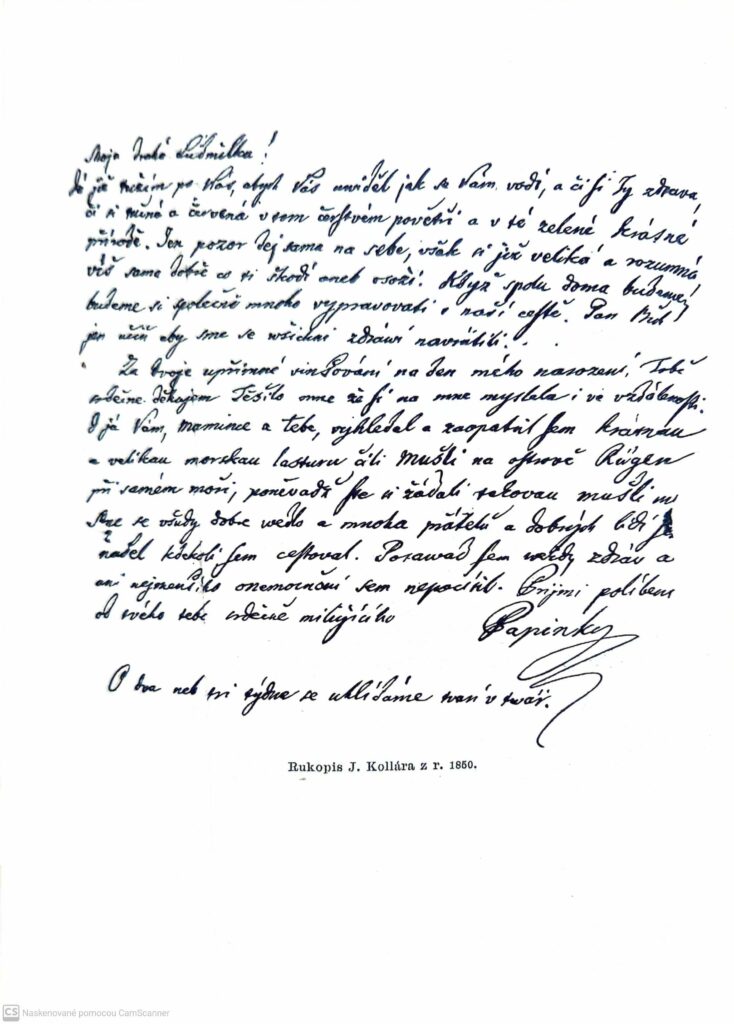 Moja drahá Lidmilka!
Já již těším po Vás, abych Vás uviděl jak se Vám vodí, a či si Ty zdravá,
či si  a červená v tom čerstvém povětří a v té zelené krásné
přírodě. Jen pozor dej sama na sebe, však si již veliká a rozumná
víš sama dobře co ti škodí aneb osoží! Když spolu doma budeme,
budeme si společně mnoho vypravovati o naší cestě. Pan Bůh
jen učiň aby sme se wšickni zdráwi navrátili.
Za tvoje upřímné vinšování na den mého narození, Tobě
srdečně děkujem Těšilo mne že si na mne myslela i ve vzdálenosti.
I já Vám, mamince a tebe, vyhledal a zaopatřil sem krásnau
a velikau morskau lasturu čili mušli na ostrově Rügen
při samém moři, poněvadž ste si žádali takovau mušli
 se všudy dobre wedlo a mnoho přátelů a dobrých lidí
našel kdekoli sem cestoval. Posawád sem wždy zdráv a
ani nejmenšího onemocnění sem nepocítil. Prijmi políbení
od svého tebe srdečně milujícího Papinky
O dva neb tri týdne se uhlídáme tvarí v twár.
Rukopis J. Kollára z r. 1850.
CS Naskenované pomocou CamScanner